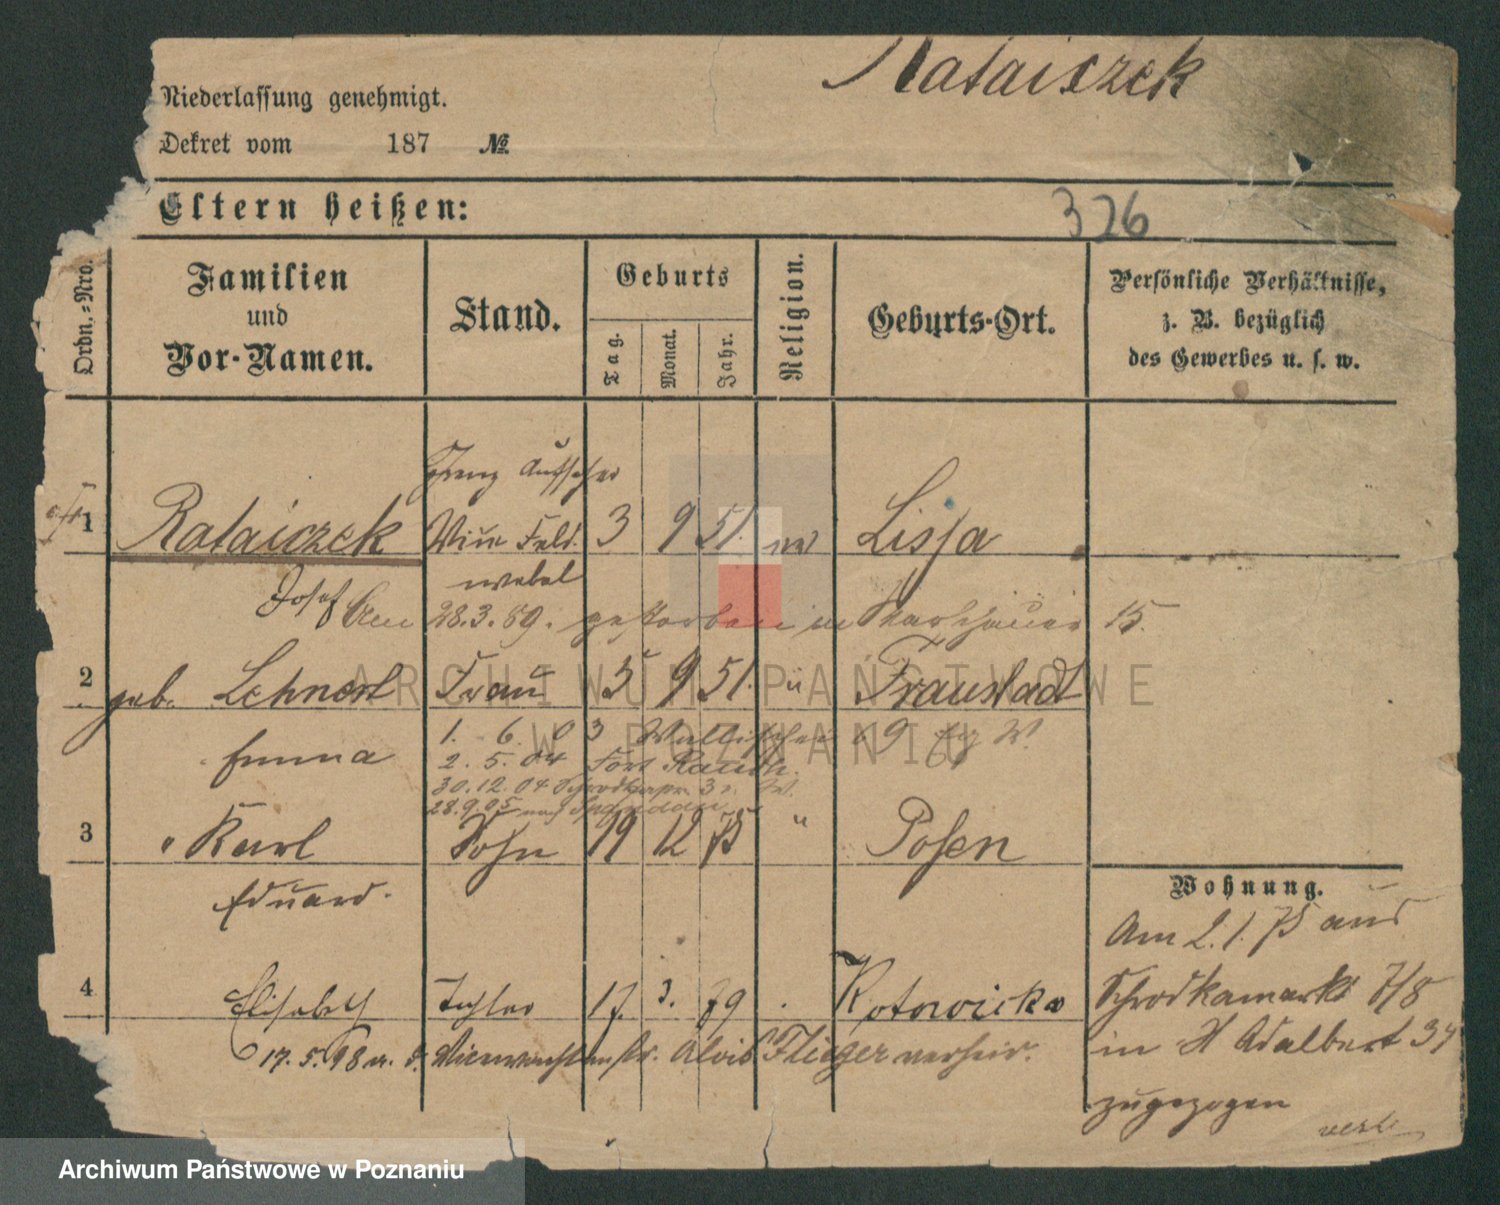 Rataiczek
Niederlassung genehmigt.
Dekret vom 187 №
Eltern heißen:
326
Ordn.-Nro.
Familien
und
Vor-Namen.
Stand.
Geburts
Tag.
Monat.
Jahr.
Religion.
Geburts-Ort.
Persönliche Verhältnisse,
z. B. bezüglich
des Gewerbes u. s. w.
Grenz Aufseher
1 Rataiczek Feld- 3 9 51. Lissa
webel
Josef
28.3.89. gestorben in 15.
2 geb. Lehnert Frau 5 9 51. " Fraustadt
Emma
1. 6. 03 Wallischei
2. 5. 04 Fort Rauch.
30.12.04
28.9.05 nach Spandau
3 " Karl Sohn 19 12 75 " Posen
Eduard.
Wohnung.
Am 2.1.75 aus
Schrodkamarkt 7/8
in St Adalbert 34
zugezogen
4 Elisabeth Tochter 17. 3. 79 Kotowicko
17.5.98 Alois Flieger verheir.
ARCHIWUM PAŃSTWOWE
W POZNANIU
Archiwum Państwowe w Poznaniu